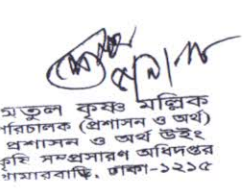 মতুল কৃষ্ণ মল্লিক
পরিচালক (প্রশাসন ও অর্থ)
প্রশাসন ও অর্থ উইং
কৃষি সম্প্রসারণ অধিদপ্তর
খামারবাড়ি, ঢাকা-১২১৫